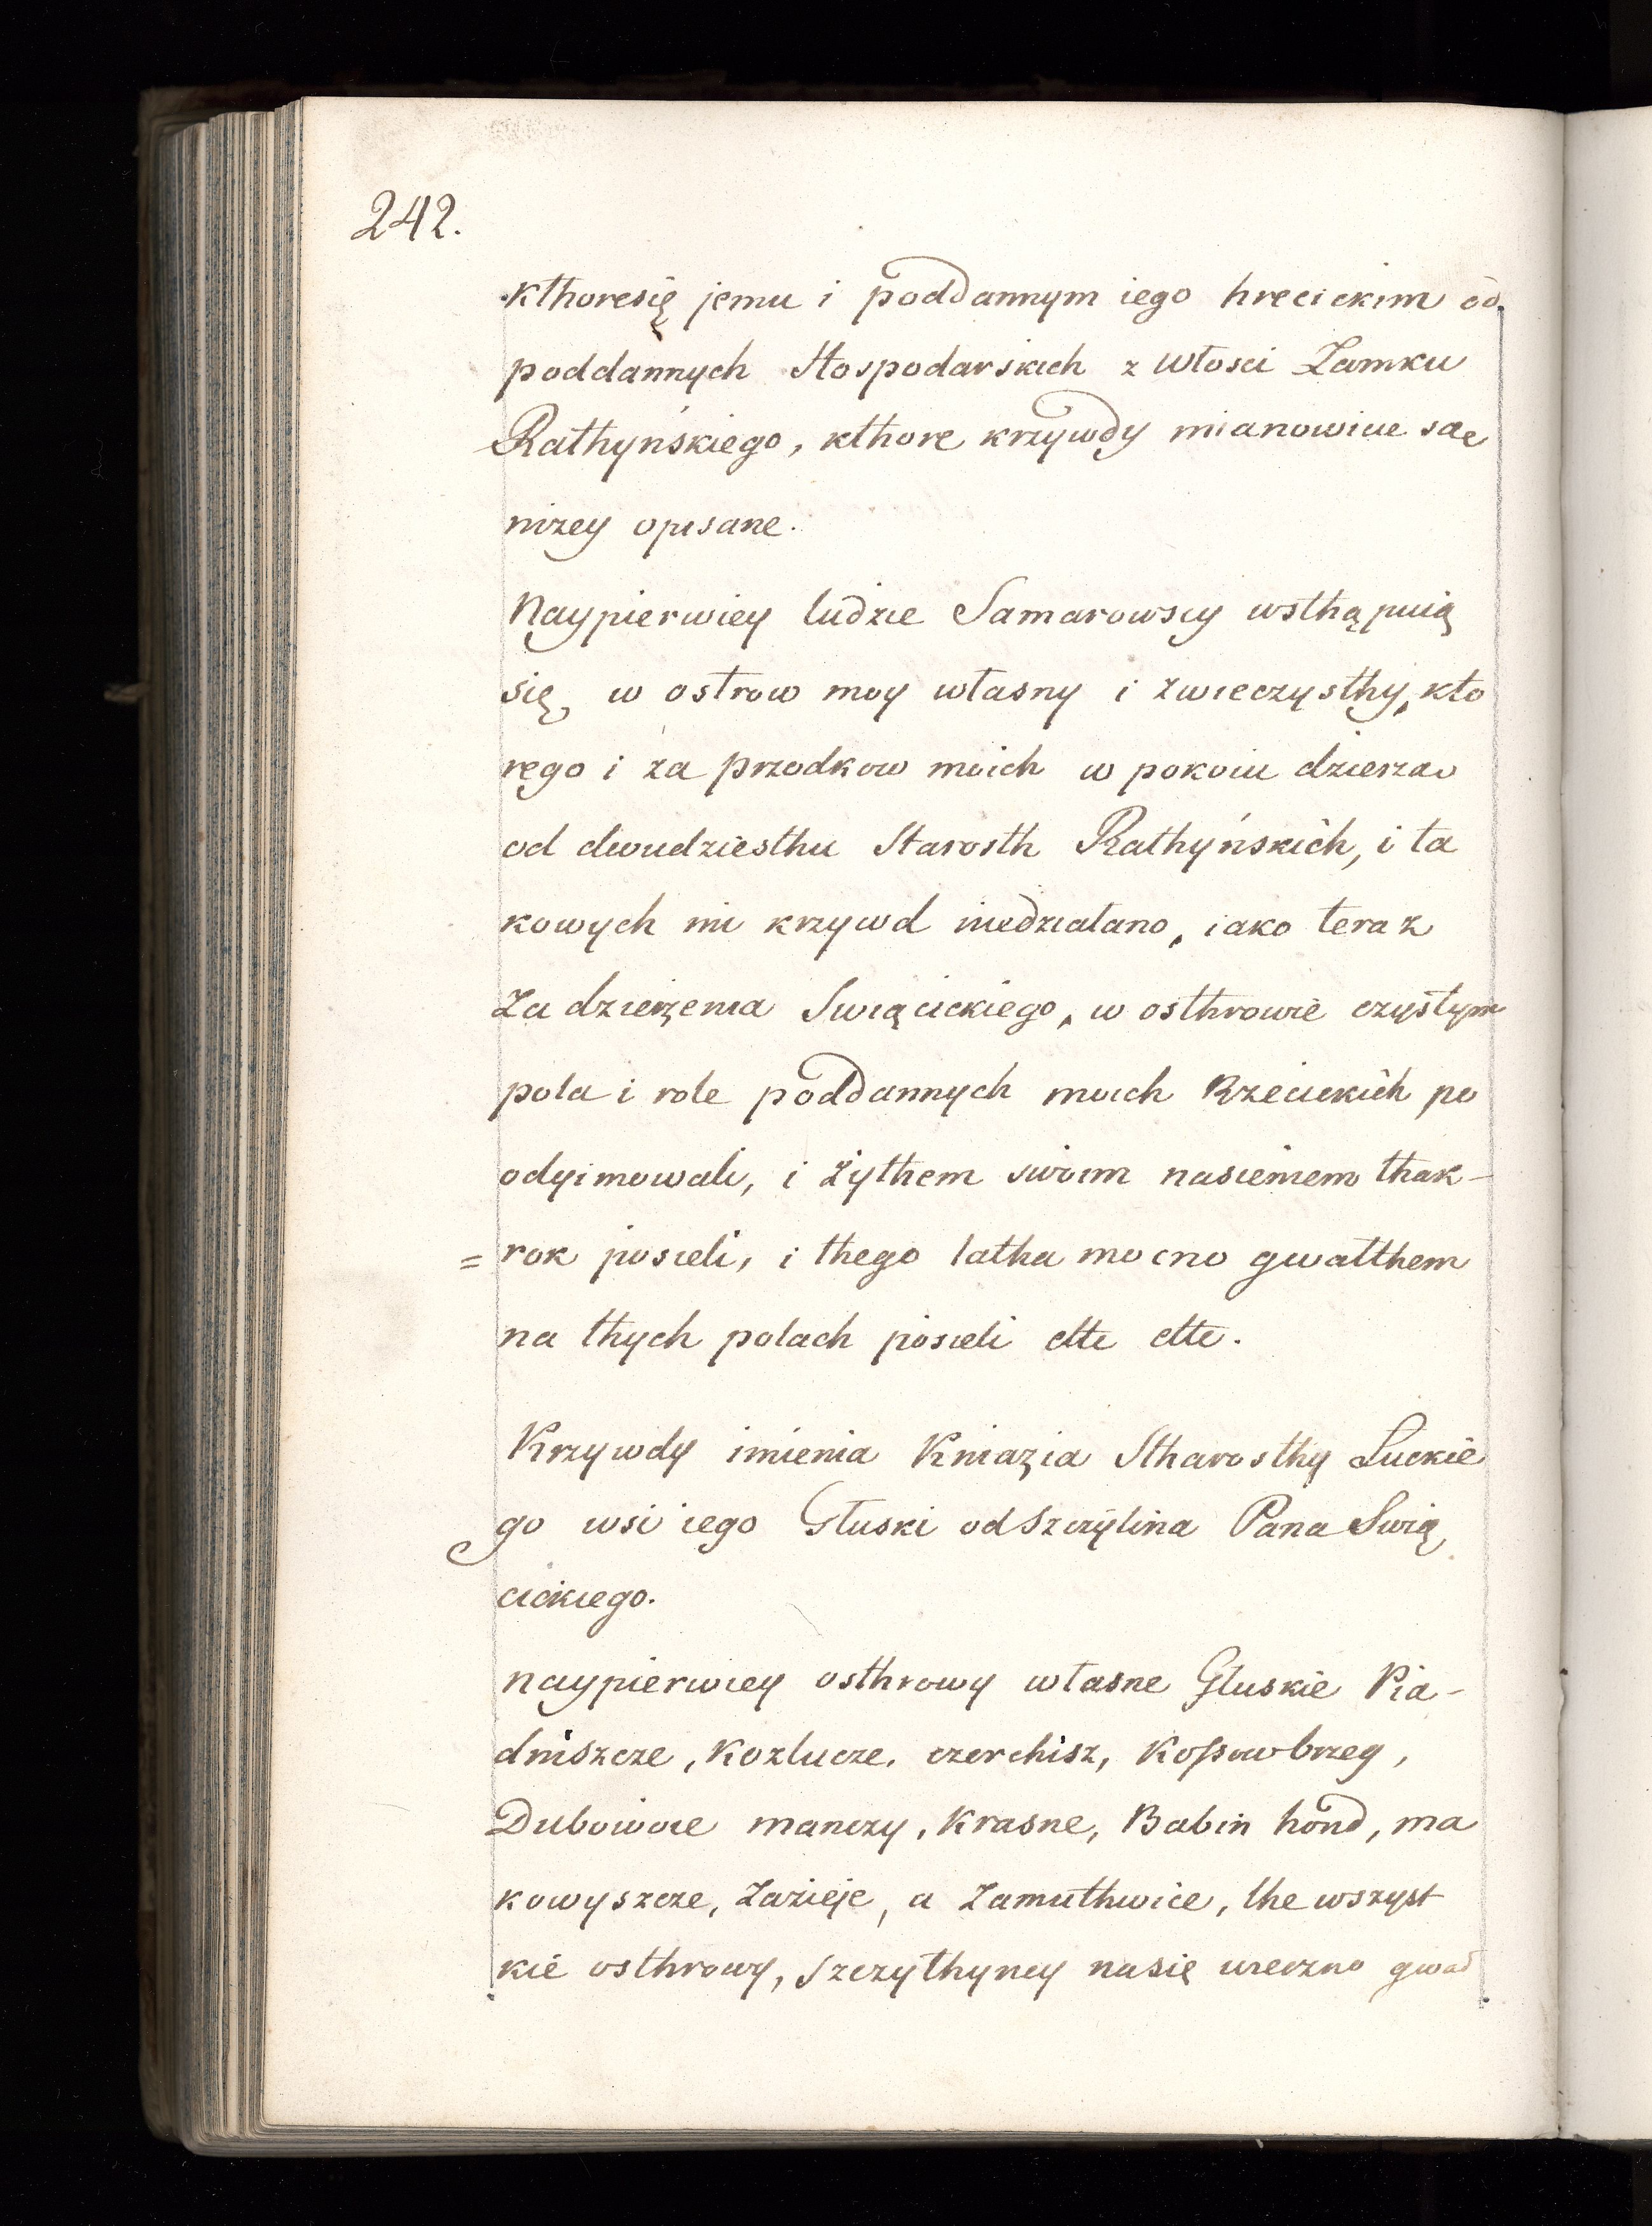 242.
kthoresię jemu i poddannym iego hrecickim od
poddannych Hospodarskich z włosci Zamku
Rathyńskiego, kthore krzywdy mianowicie sae
nizey opisane.
Naypierwiey ludzie Samarowscy wsthąpuią
się w ostrow moy własny i zwieczysthy, kto
rego i za przodkow moich w pokoiu dzierzao
od dwudziesthu Starosth Rathyńskich, i ta
kowych mi krzywd niedziałano, iako teraz
za dzierzenia Swiącickiego, w osthrowie czystym
pola i role poddannych moich Rzecickich po
odyimowali, i żythem swoim nasieniem thak-
=rok posieli, i thego latha mocno gwałthem
na thych polach posieli ette ette.
Krzywdy imienia Kniazia Stharosthy Łuckie
go wsi iego Głuski od Szczytina Pana Swią
cickiego.
Naypierwiey osthrowy własne Głuskie Pia-
dniszcze, Kozlucze, czerchisz, Kossowbrzeg,
Dubowoie manczy, Krasne, Babin hond, ma
kowyszcze, Zazieje, a Zamuthwice, the wszyst
kie osthrowy, Szczythyncy nasię wieczno gwał